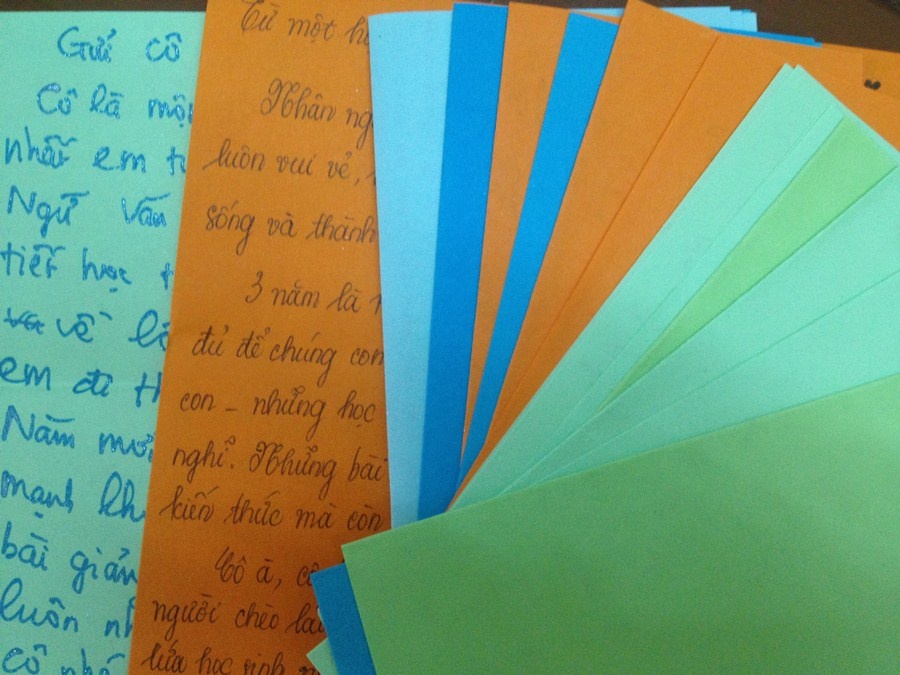 Gửi cô
Cô là một
nhất em
Ngữ Văn
tiết học
về
em đi
Năm mới
mạnh
bài giản
luôn
cô
Từ một
Nhân ng
luôn vui vẻ,
sống và thành
3 năm là
đủ để chúng con
con - những học
nghĩ. Những bài
kiến thức mà còn
Cô à, cô
người chèo lái
lứa học sinh